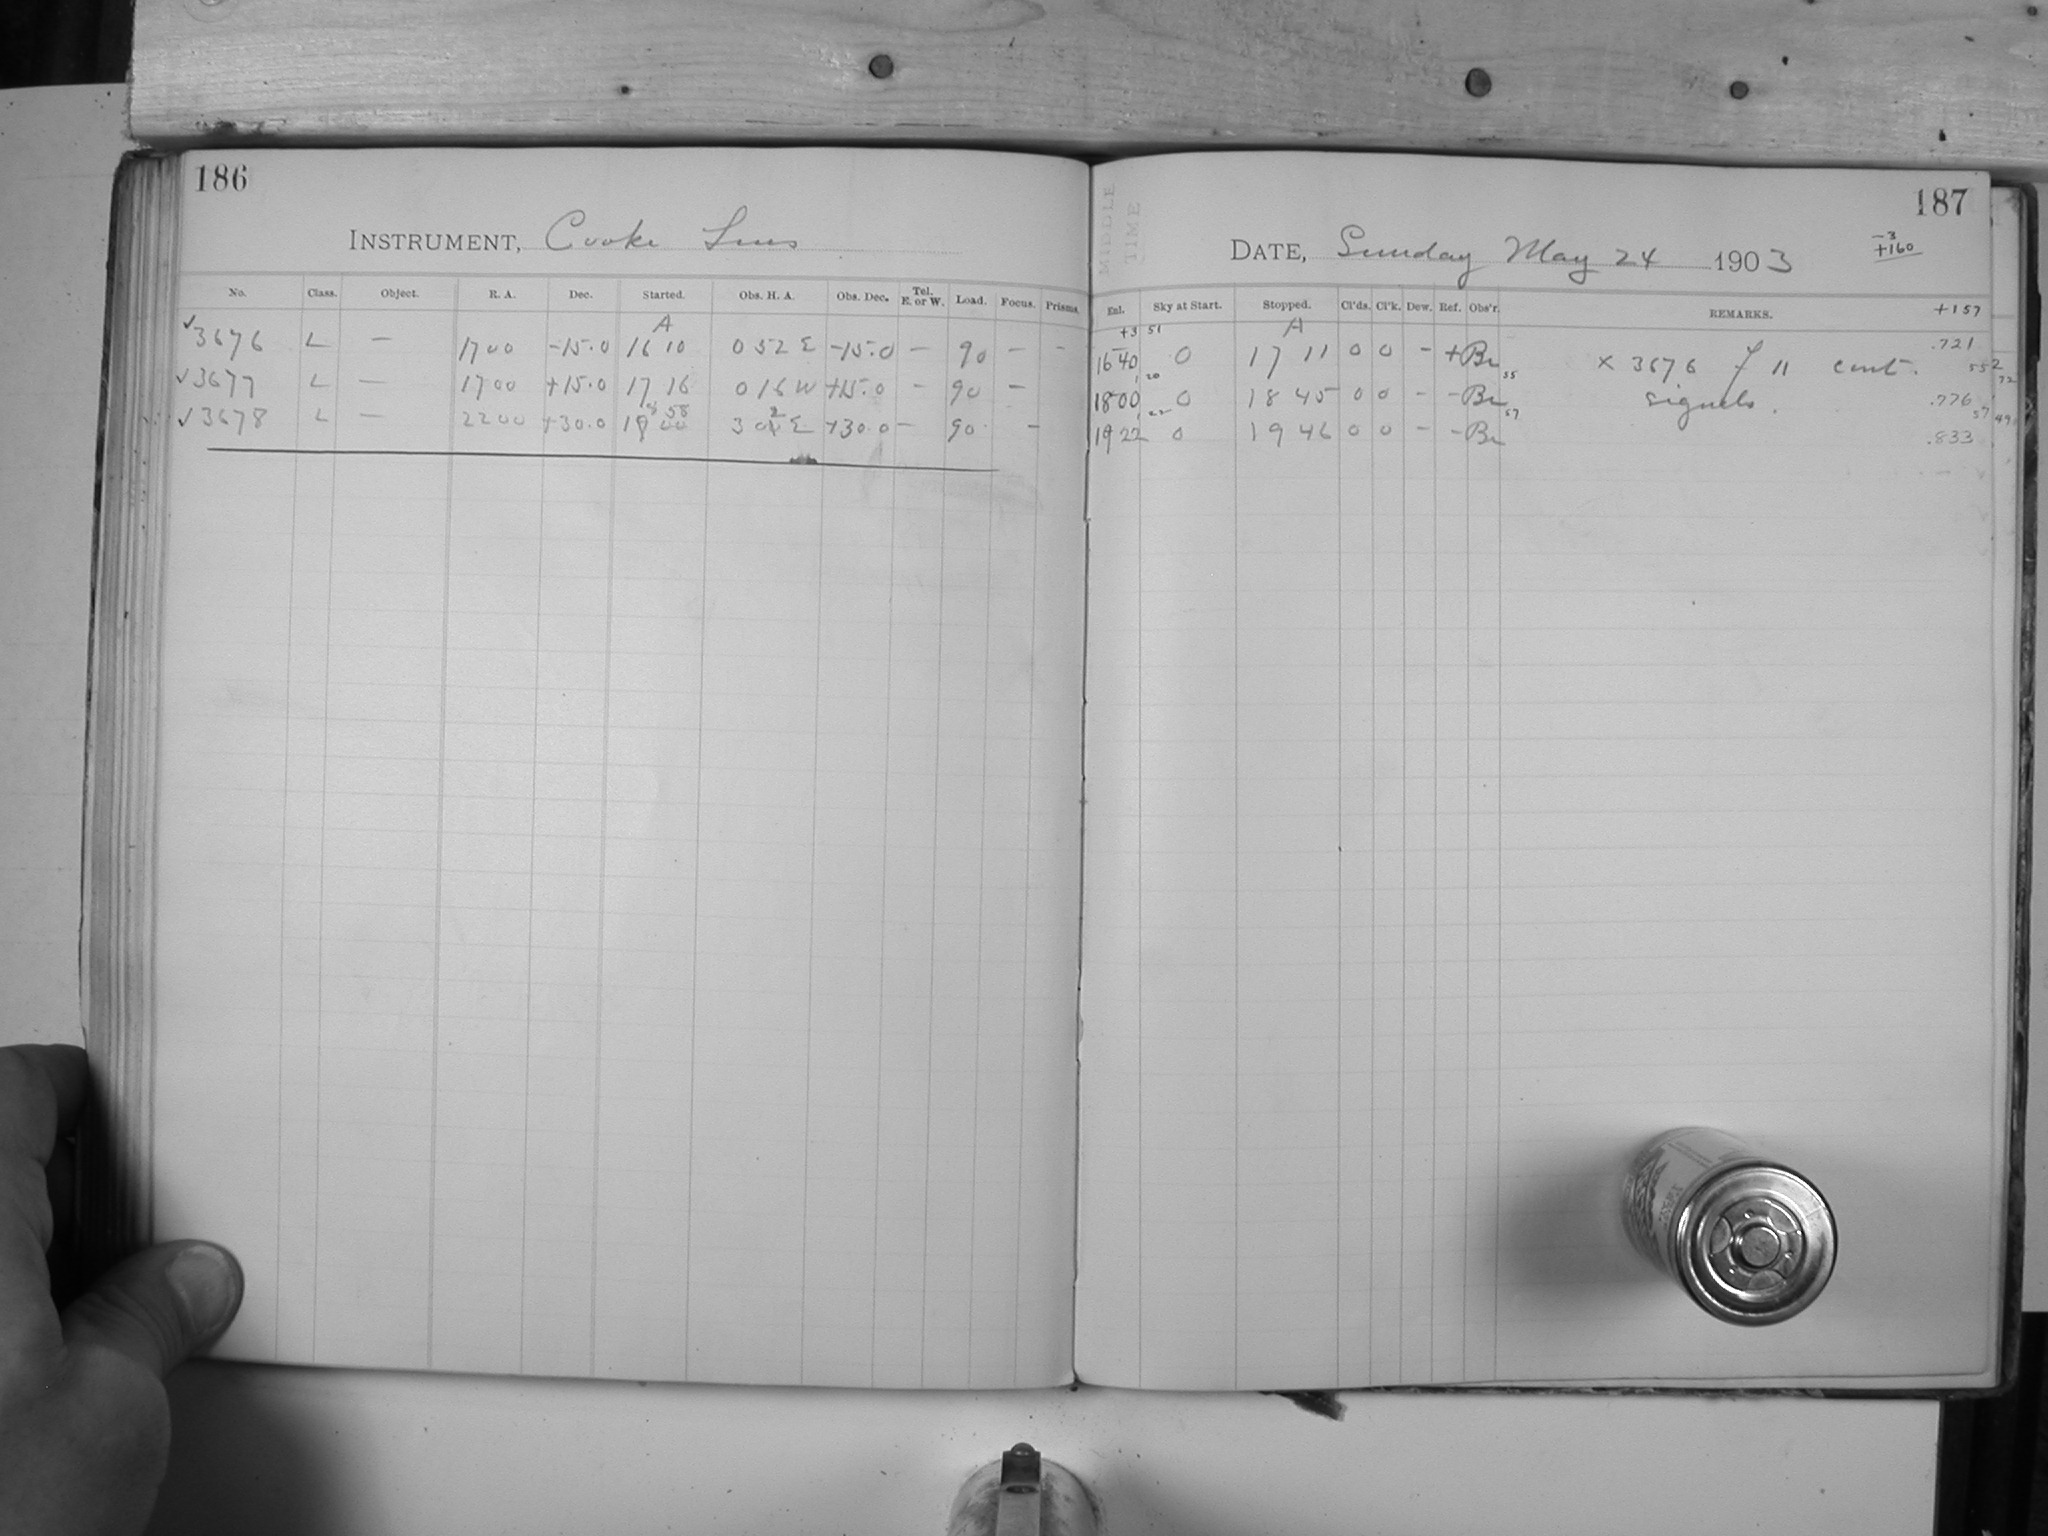 186
INSTRUMENT, Cooke Lens
No. Class. Object. R. A. Dec. Started. Obs. H. A. Obs. Dec. Tel. E. or W. Load. Focus. Prisms.
A
✓3676 L — 1700 -15.0 16 10 0 52 E -15.0 — 90 — —
✓3677 L — 1700 +15.0 17 16 0 16 W +15.0 — 90 —
✓3678 L — 2200 +30.0 18 58 3 02 E +30.0 — 90 —
187
MIDDLE TIME
DATE, Sunday May 24 1903
-3
+160
+157
Ent. Sky at Start. Stopped. Cl'ds. Cl'k. Dew. Ref. Obs'r. REMARKS.
+3 51 A
1640 0 17 11 0 0 — + Br × 3676 f 11 cont. .721
1800 0 18 45 0 0 — — Br signals. .776
1922 0 19 46 0 0 — — Br .833